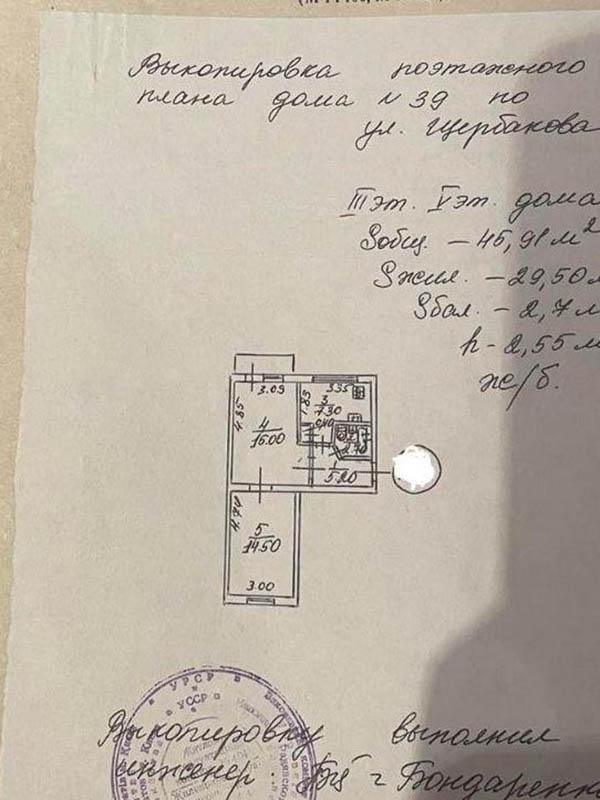 Выкопировка поэтажного
плана дома N 39 по
ул. Щербакова
III эт. V эт. дома
Sобщ. – 45,91 м²
Sжил. – 29,50 м
Sбал. – 2,7 м
h – 2,55 м
ж/б.
3.09
3.35
4.85
1.83
3
7.30
4
15.00
1
5.20
4.74
5
14.50
3.00
УРСР
УССР
Выкопировку выполнил
инженер: Бондаренко